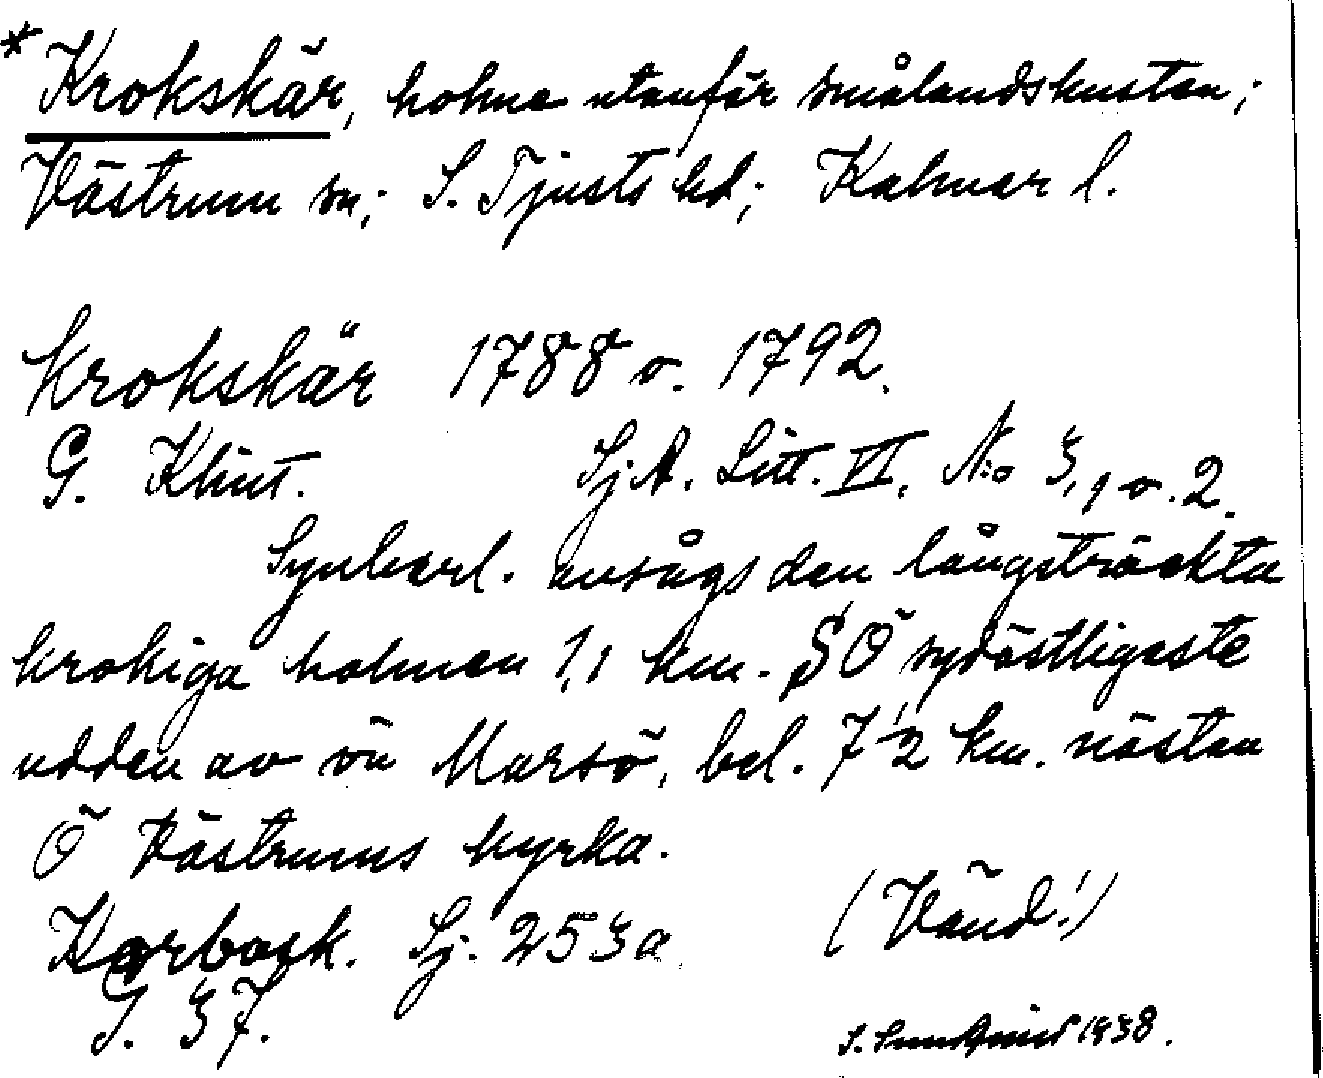 * Krokskär, holme utanför smålandskusten;
Västrum sn; S. Tjusts hd; Kalmar l.
Krokskär 1788 o. 1792.
G. Klint. Sj.A. Litt. VI. N:o 3,1 o. 2.
Synbarl. avsågs den långsträckta
krokiga holmen 1,1 km. SÖ sydöstligaste
udden av ön Marsö, bel. 7 1/2 km. nästan
Ö Västrums kyrka.
(Vänd!)
Sj. 253a
S. 37.
1938.